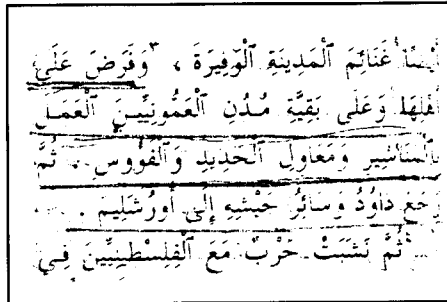 أَيْضًا غَنَائِمَ الْمَدِينَةِ الْوَفِيرَةَ ، ٣ وَفَرَضَ عَلَى
أَهْلِهَا وَعَلَى بَقِيَّةِ مُدُنِ الْعَمُّونِيِّينَ الْعَمَلَ
بِالْمَنَاشِيرِ وَمَعَاوِلِ الْحَدِيدِ وَالْفُؤُوسِ . ثُمَّ
رَجَعَ دَاوُدُ وَسَائِرُ جَيْشِهِ إِلَى أُورُشَلِيمَ .
ثُمَّ نَشَبَتْ حَرْبٌ مَعَ الْفِلِسْطِينِيِّينَ فِي